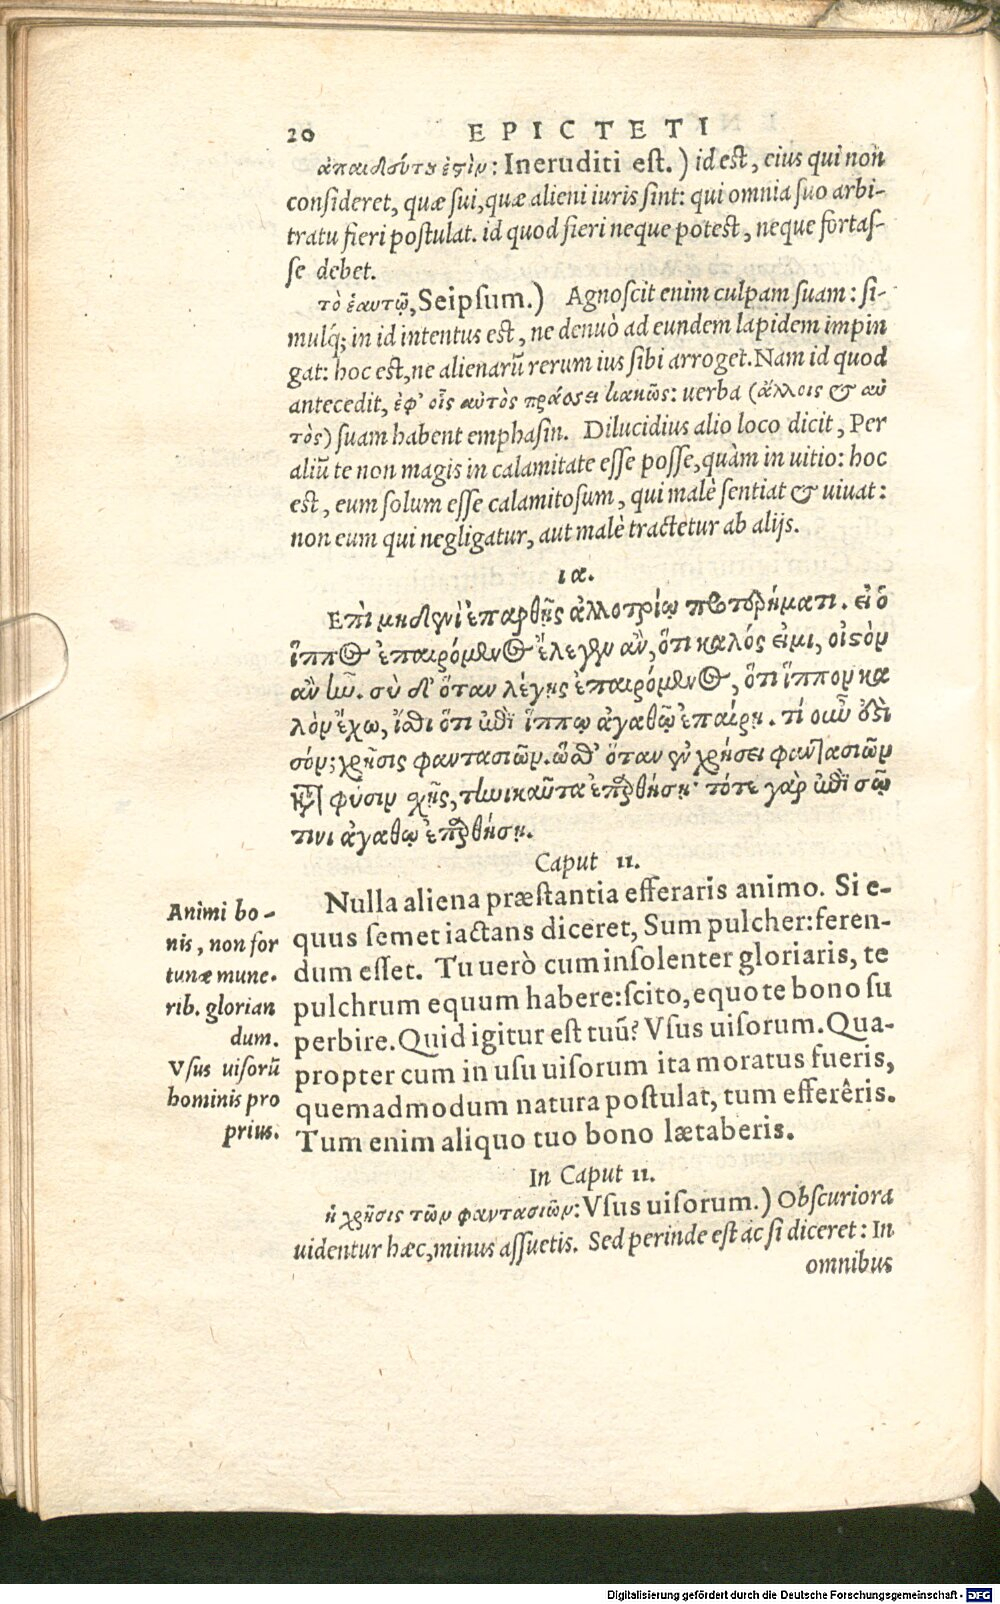 20 EPICTETI
ἀπαιδεύτου ἐστὶν: Ineruditi est.) id est, eius qui non
consideret, quæ sui, quæ alieni iuris sint: qui omnia suo arbi-
tratu fieri postulat. id quod fieri neque potest, neque fortas-
se debet.
τὸ ἑαυτῷ, Seipsum.) Agnoscit enim culpam suam: si-
mulq́; in id intentus est, ne denuò ad eundem lapidem impin
gat: hoc est, ne alienarũ rerum ius sibi arroget. Nam id quod
antecedit, ἐφ' οἷς αὐτὸς πράσσει κακῶς: uerba (ἄλλοις & αὐ
τὸς) suam habent emphasin. Dilucidius alio loco dicit, Per
aliũ te non magis in calamitate esse posse, quàm in uitio: hoc
est, eum solum esse calamitosum, qui malè sentiat & uiuat:
non eum qui negligatur, aut malè tractetur ab alijs.
ια.
Ἐπὶ μηδενὶ ἐπαρθῇς ἀλλοτρίῳ προτερήματι. εἰ ὁ
ἵππος ἐπαιρόμενος ἔλεγεν ἂν, ὅτι καλός εἰμι, οἰστὸν
ἂν ἦν. σὺ δ' ὅταν λέγῃς ἐπαιρόμενος, ὅτι ἵππον κα
λὸν ἔχω, ἴσθι ὅτι ἐπὶ ἵππῳ ἀγαθῷ ἐπαίρῃ. τί οὖν ἐστὶ
σόν; χρῆσις φαντασιῶν. ὥσθ' ὅταν ἐν χρήσει φαντασιῶν
κατὰ φύσιν ἔχῃς, τηνικαῦτα ἐπάρθησῃ· τότε γὰρ ἐπὶ σῷ
τινι ἀγαθῷ ἐπαρθήσῃ.
Caput 11.
Nulla aliena præstantia efferaris animo. Si e-
quus semet iactans diceret, Sum pulcher: feren-
dum esset. Tu uerò cum insolenter gloriaris, te
pulchrum equum habere: scito, equo te bono su
perbire. Quid igitur est tuũ? Vsus uisorum. Qua-
propter cum in usu uisorum ita moratus fueris,
quemadmodum natura postulat, tum efferêris.
Tum enim aliquo tuo bono lætaberis.
Animi bo-
nis, non for
tunæ mune-
rib. glorian
dum.
Vsus uisorũ
hominis pro
prius.
In Caput 11.
ἡ χρῆσις τῶν φαντασιῶν: Vsus uisorum.) Obscuriora
uidentur hæc, minus assuetis. Sed perinde est ac si diceret: In
omnibus
Digitalisierung gefördert durch die Deutsche Forschungsgemeinschaft - DFG